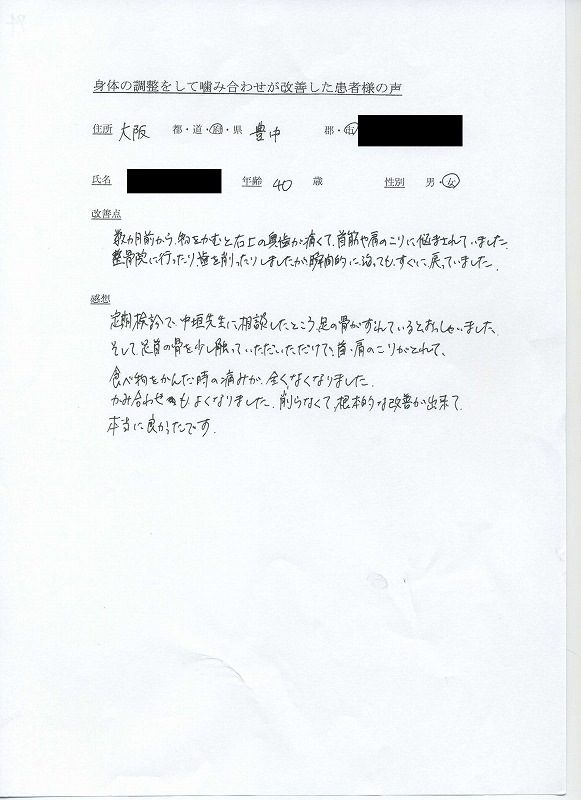 身体の調整をして噛み合わせが改善した患者様の声
住所 大阪 都・道・府・県 豊中 郡・市
氏名 年齢 40 歳 性別 男・女
改善点
数カ月前から、物をかむと右上の奥歯が痛くて、首筋や肩のこりに悩まされていました。
整骨院に行ったり歯を削ったりしましたが瞬間的に治っても、すぐに戻っていました。
感想
定期検診で、中垣先生に相談したところ、足の骨がずれているとおっしゃいました。
そして、足首の骨を少し触っていただいただけで、首・肩のこりがとれて、
食べ物をかんだ時の痛みが、全くなくなりました。
かみ合わせも よくなりました。削らなくて、根本的な改善が出来て、
本当に良かったです。